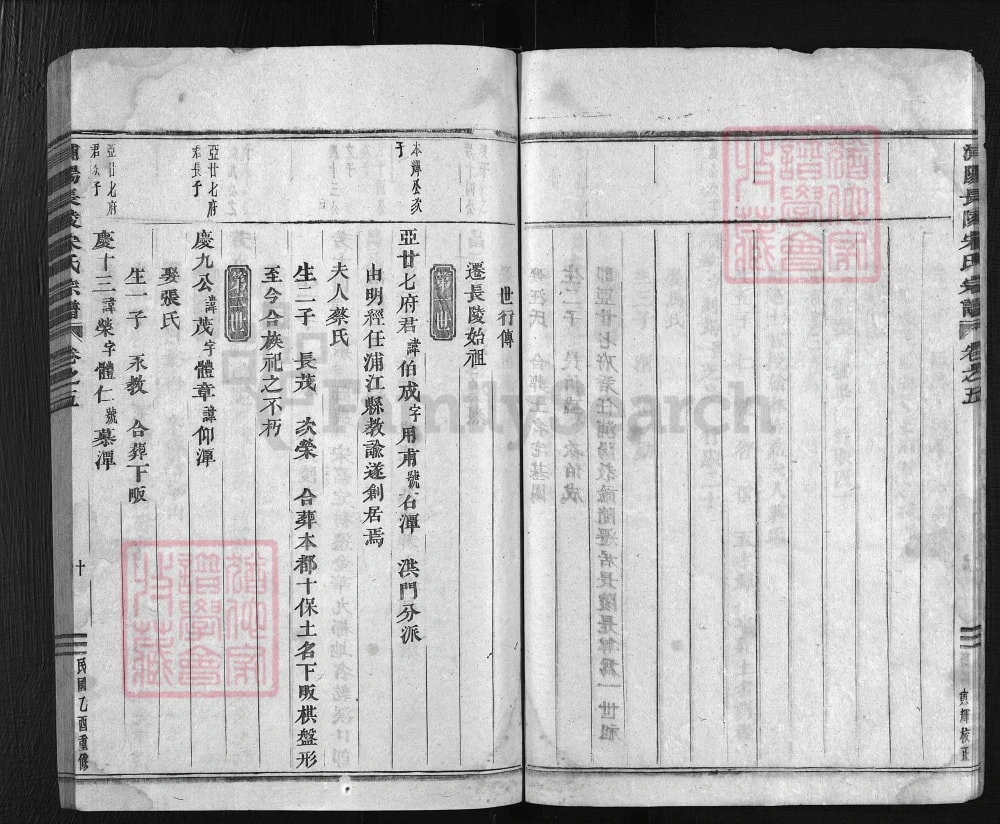 浦陽長陵宋氏宗譜 卷之五
世行傳
遷長陵始祖
第一世
本輝丞次子
亞廿七府君諱伯成字用甫號石潭 洪門分派
由明經任浦江縣教諭遂創居焉
夫人蔡氏
生二子 長茂 次榮 合葬本都十保土名下畈棋盤形
至今合族祀之不朽
第二世
亞廿七府君長子
慶九公諱茂字體章諱仰潭
娶張氏
生一子 永教 合葬下畈
亞廿七府君次子
慶十三諱榮字體仁號慕潭
浦陽長陵宋氏宗譜 卷之五 十 民國乙酉重修
FamilySearch